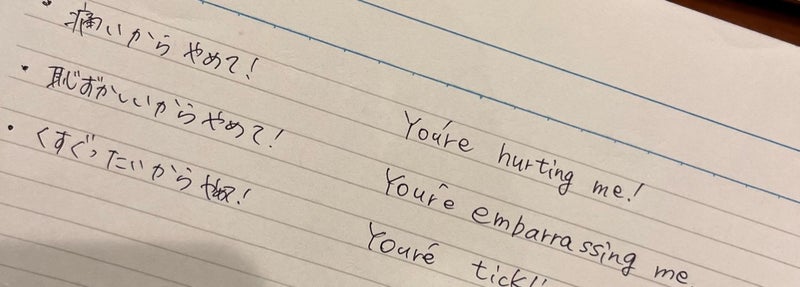 ・痛いからやめて!
・恥ずかしいからやめて!
・くすぐったいから!
You're hurting me!
You're embarrassing me
You're